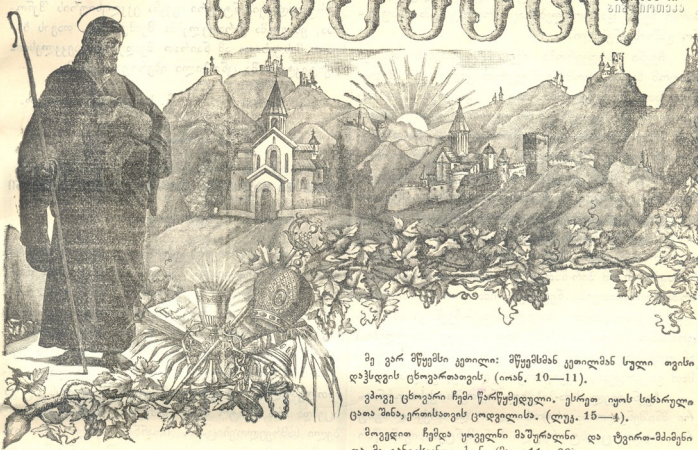 მე ვარ მწყემსი კეთილი: მწყემსმან კეთილმან სული თვისი
დაჰსდვის ცხოვართათვის. (იოან. 10—11).
ვჰპოვე ცხოვარი ჩემი წარწყმედული. ესრეთ იყოს სიხარული
ცათა შინა, ერთისათვის ცოდვილისა. (ლუკ. 15—4).
მოვედით ჩემდა ყოველნი მაშურალნი და ტვირთ-მძიმენი